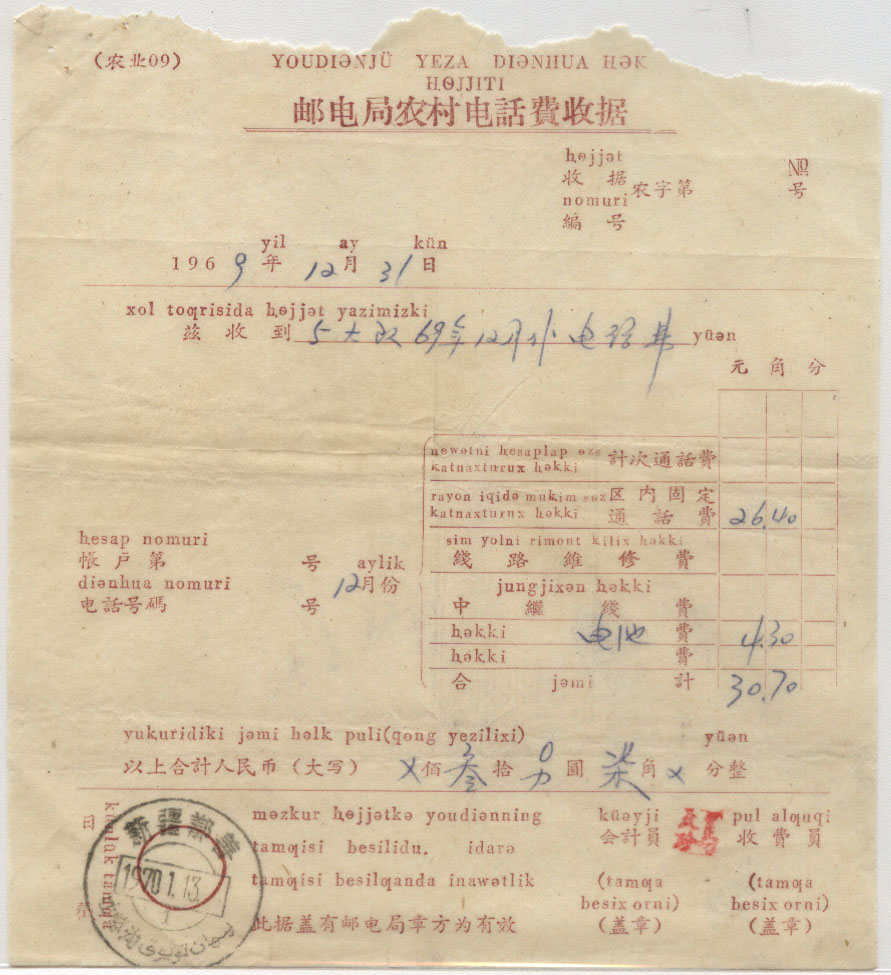 (农业09)
YOUDIƏNJÜ YEZA DIƏNHUA ⱨƏK
ⱨɵJJITI
邮电局农村电話費收据
ⱨɵjjət
收据 农字第 № 号
nomuri
編号
yil ay kün
1969年12月31日
xol toƣrisida ⱨɵjjət yazimizki
茲收到 5大队69年12月外电话费 yüən
元 角 分
nɵwətni ⱨesaplap sɵz
katnaxturux ⱨəkki 計次通話費
rayon iqidə mukim sɵz 区内固定
katnaxturux ⱨəkki 通話費 26.40
sim yolni rimont kilix ⱨəkki
綫路維修費
jungjixən ⱨəkki
中継綫費
ⱨəkki 电池 費 4.30
ⱨəkki 費
合 jəmi 計 30.70
ⱨesap nomuri
帳戶第 号 aylik
diənhua nomuri 12月份
电話号碼 号
yukuridiki jəmi həlk puli(qong yezilixi) yüən
以上合計人民币(大写) ×佰叁拾0圆柒角×分整
日 künlük tamƣa
məzkur ⱨɵjjətkə youdiənning
tamƣisi besilidu. idarə
tamƣisi besilƣanda inawətlik
此据盖有邮电局章方为有效
küəyji
会計員
(tamƣa
besix orni)
(盖章)
pul alƣuqi
收費員
(tamƣa
besix orni)
(盖章)
新疆鄯善
1970.1.13